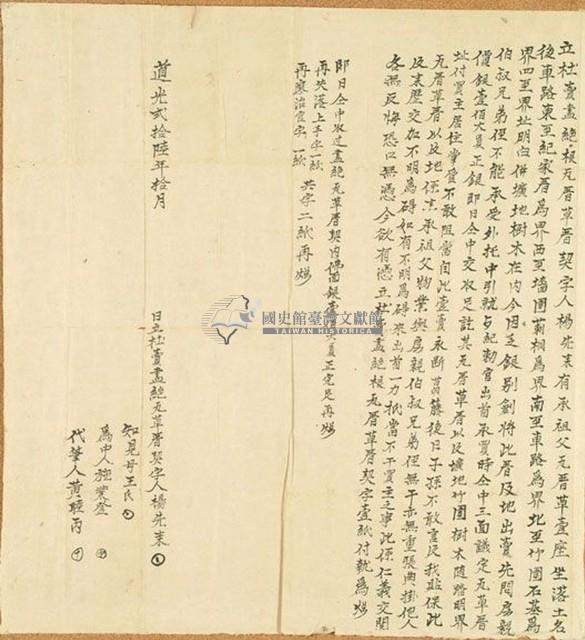 立杜賣盡絕根瓦草厝契字人楊先來有承祖父瓦草壹座坐落土名
後車路東至紀家厝為界西至墻圍莿桐為界南至車路為界北至竹圍石墓為
界四至界址明白併壙地樹木在內今因乏銀別創將此厝及地出賣先問房親
伯叔兄弟侄不能承受外托中引就與紀勅官出首承買時仝中三面議定瓦草厝
價銀壹佰大員正銀即日仝中交收足訖其瓦厝草厝以及壙地竹圍樹木隨踏明界
址付買主居住掌管不敢阻當自此壹賣永斷葛藤後日子孫不敢言及找貼保此
瓦厝草厝以及地係是承祖父物業與房親伯叔兄弟侄無干亦無重張典掛他人
及來歷交加不明為碍如有不明為碍來出首一力抵當不干買主之事此係仁義交關
各無反悔恐口無憑今欲有憑立杜賣盡絕根瓦厝草厝契字壹紙付執為炤
即日仝中收過盡絕瓦草厝契內佛面銀壹佰大員正完足再炤
再失落上手字一紙
再繳治官字一紙 共字二紙再炤
道光貳拾陸年拾月
日立杜賣盡絕瓦草厝契字人楊先來
知見母王氏
為中人施業登
代筆人黃睦丙
國史館臺灣文獻館
TAIWAN HISTORICA